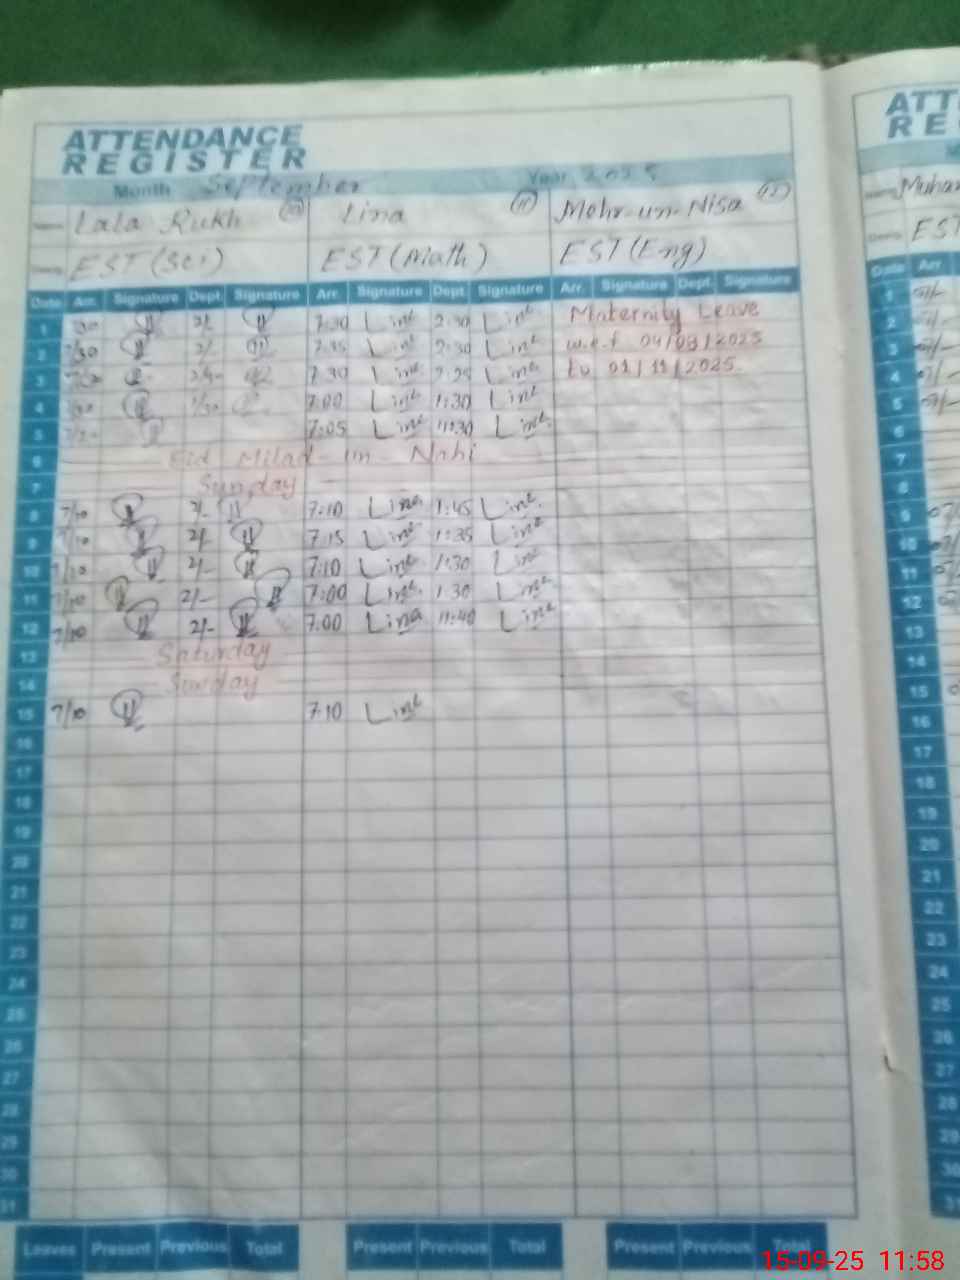 ATTENDANCE
REGISTER
Month September Year 2025
Lala Rukh Lina (11) Mehr-un-Nisa (12)
EST (Sci) EST (Math) EST (Eng)
Date Arr. Signature Dept. Signature Arr. Signature Dept. Signature Arr. Signature Dept. Signature
1 2/- 7:30 Lina 2:30 Lina Maternity Leave
2 7/30 2/- Lina 2:30 Lina w.e.f 04/08/2025
3 7:30 Lina Lina to 01/11/2025.
4 7:00 Lina 1:30 Lina
5 7:05 Lina 11:30 Lina
6 Eid Milad-un-Nabi
7 Sunday
8 7/10 2/- 7:10 Lina 1:45 Lina
9 7/10 2/- 7:15 Lina 1:35 Lina
10 7/10 2/- 7:10 Lina 1:30 Lina
11 7/10 2/- 7:00 Lina 1:30 Lina
12 7/10 2/- 7:00 Lina 11:40 Lina
13 Saturday
14 Sunday
15 7/10 7:10 Lina
16
17
18
19
20
21
22
23
24
25
26
27
28
29
30
31
Leaves Present Previous Total Present Previous Total Present Previous Total
ATT
RE
Muha
EST
Date Arr
1
2
3
4
5
6
7
8
9
10
11
12
13
14
15
16
17
18
19
20
21
22
23
24
25
26
27
28
29
30
31
15-09-25 11:58